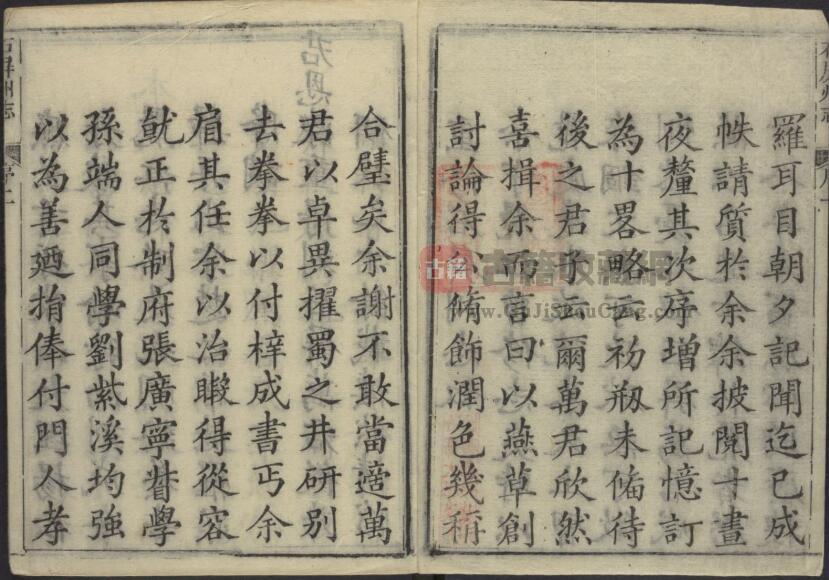 羅耳目朝夕記聞迄已成
帙請質於余余披閱十晝
夜釐其次序增所記憶訂
為十畧略云初剏未備待
後之君子云爾萬君欣然
喜揖余而言曰以燕草創
討論得公脩飾潤色幾稱
合璧矣余謝不敢當適萬
君以卓異擢蜀之井研別
去拳拳以付梓成書丐余
肩其任余以治暇得從容
就正於制府張廣寧督學
孫端人同學劉紫溪均強
以為善廼捐俸付門人孝
石屏州志
序二
古籍收藏網
www.GuJiShouCang.com